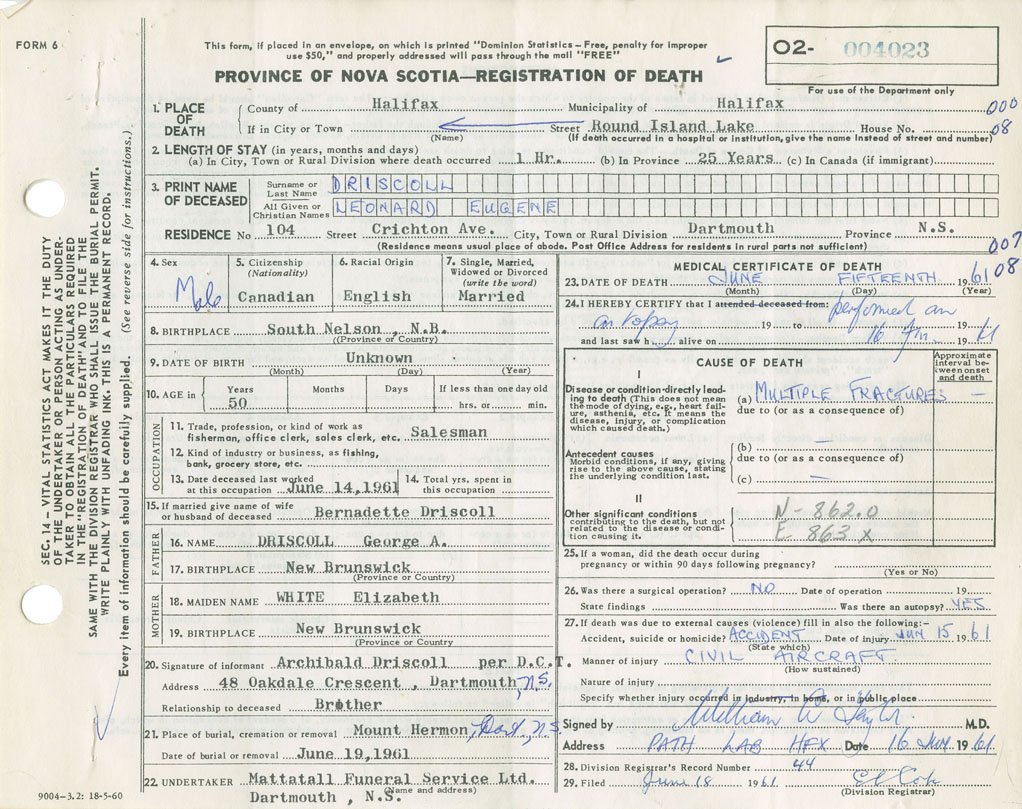 FORM 6
This form, if placed in an envelope, on which is printed "Dominion Statistics—Free, penalty for improper
use $50," and properly addressed will pass through the mail "FREE"
O2- 004023
For use of the Department only
PROVINCE OF NOVA SCOTIA—REGISTRATION OF DEATH
1. PLACE OF DEATH County of Halifax Municipality of Halifax 000
If in City or Town Street Round Island Lake House No. 08
(Name) (If death occurred in a hospital or institution, give the name instead of street and number)
2. LENGTH OF STAY (in years, months and days)
(a) In City, Town or Rural Division where death occurred 1 Hr. (b) In Province 25 Years (c) In Canada (if immigrant)
3. PRINT NAME OF DECEASED
Surname or Last Name DRISCOLL
All Given or Christian Names LEONARD EUGENE
RESIDENCE No 104 Street Crichton Ave. City, Town or Rural Division Dartmouth Province N.S.
(Residence means usual place of abode. Post Office Address for residents in rural parts not sufficient) 007
08
4. Sex Male
5. Citizenship (Nationality) Canadian
6. Racial Origin English
7. Single, Married, Widowed or Divorced (write the word) Married
8. BIRTHPLACE South Nelson, N.B.
(Province or Country)
9. DATE OF BIRTH Unknown
(Month) (Day) (Year)
10. AGE in Years Months Days If less than one day old
50 hrs. or min.
OCCUPATION
11. Trade, profession, or kind of work as
fisherman, office clerk, sales clerk, etc. Salesman
12. Kind of industry or business, as fishing,
bank, grocery store, etc.
13. Date deceased last worked
at this occupation June 14,1961
14. Total yrs. spent in
this occupation
15. If married give name of wife
or husband of deceased Bernadette Driscoll
FATHER
16. NAME DRISCOLL George A.
17. BIRTHPLACE New Brunswick
(Province or Country)
MOTHER
18. MAIDEN NAME WHITE Elizabeth
19. BIRTHPLACE New Brunswick
(Province or Country
20. Signature of informant Archibald Driscoll per D.C.T.
Address 48 Oakdale Crescent, Dartmouth, N.S.
Relationship to deceased Brother
21. Place of burial, cremation or removal Mount Hermon, Dart, N.S.
Date of burial or removal June 19,1961
22. UNDERTAKER Mattatall Funeral Service Ltd.
(Name and address)
Dartmouth, N.S.
9004-3.2: 18-5-60
MEDICAL CERTIFICATE OF DEATH
23. DATE OF DEATH JUNE FIFTEENTH 1961
(Month) (Day) (Year)
24. I HEREBY CERTIFY that I attended deceased from: performed an
autopsy 19 to 16 Jun 1961
and last saw h alive on 19
CAUSE OF DEATH
Approximate interval between onset and death
I
Disease or condition directly leading to death (This does not mean the mode of dying, e.g., heart failure, asthenia, etc. It means the disease, injury, or complication which caused death.)
(a) MULTIPLE FRACTURES —
due to (or as a consequence of)
Antecedent causes
Morbid conditions, if any, giving rise to the above cause, stating the underlying condition last.
(b) —
due to (or as a consequence of)
(c) —
II
Other significant conditions
contributing to the death, but not related to the disease or condition causing it.
N-862.0
E 863 x
25. If a woman, did the death occur during
pregnancy or within 90 days following pregnancy?
(Yes or No)
26. Was there a surgical operation? NO Date of operation 19
State findings Was there an autopsy? YES
27. If death was due to external causes (violence) fill in also the following:-
Accident, suicide or homicide? ACCIDENT Date of injury JUN 15 1961
(State which)
Manner of injury CIVIL AIRCRAFT
(How sustained)
Nature of injury
Specify whether injury occurred in industry, in home, or in public place
Signed by William W Taylor M.D.
Address PATH LAB HFX Date 16 Jun 1961
28. Division Registrar's Record Number 44
29. Filed June 18 1961
(Division Registrar)
SEC. 14 – VITAL STATISTICS ACT MAKES IT THE DUTY
OF THE UNDERTAKER OR PERSON ACTING AS UNDER-
TAKER TO OBTAIN ALL THE PARTICULARS REQUIRED
IN THE "REGISTRATION OF DEATH" AND TO FILE THE
SAME WITH THE DIVISION REGISTRAR WHO SHALL ISSUE THE BURIAL PERMIT.
WRITE PLAINLY WITH UNFADING INK. THIS IS A PERMANENT RECORD.
Every item of information should be carefully supplied. (See reverse side for instructions.)